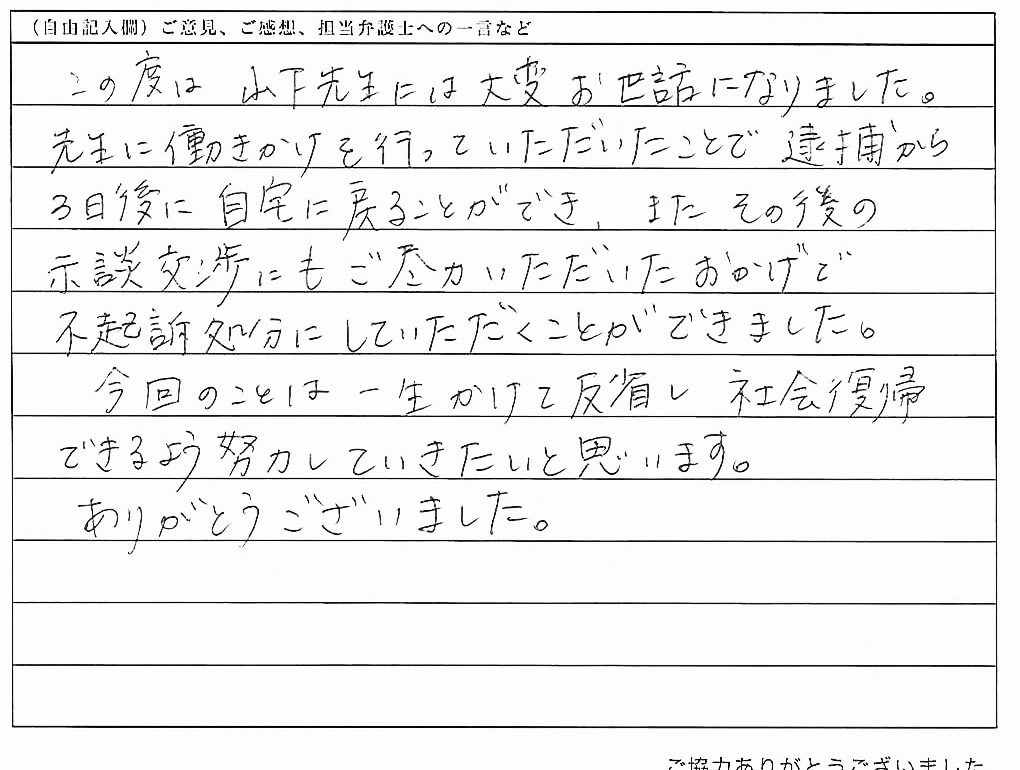 （自由記入欄）ご意見、ご感想、担当弁護士への一言など
この度は 山下先生には大変お世話になりました。
先生に働きかけを行っていただいたことで 逮捕から
3日後に 自宅に戻ることができ、また その後の
示談交渉にもご尽力いただいたおかげで
不起訴処分にしていただくことができました。
今回のことは 一生かけて反省し 社会復帰
できるよう努力していきたいと思います。
ありがとうございました。
ご協力ありがとうございました